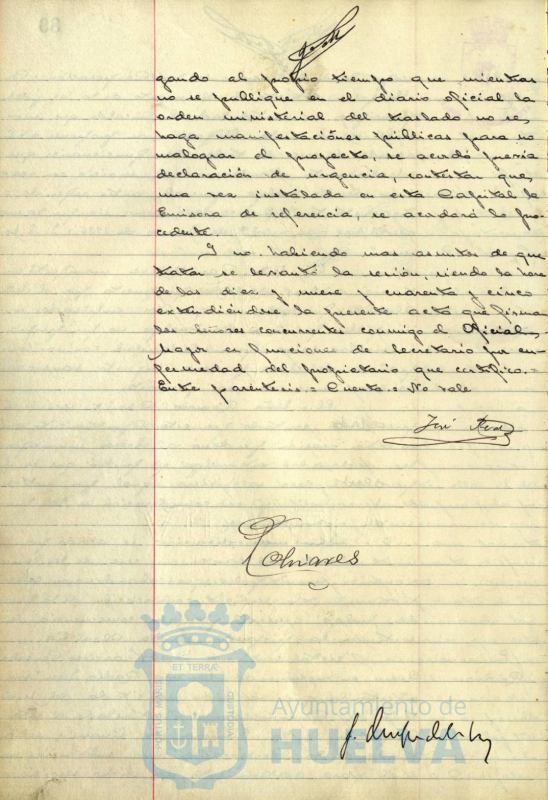 gando al propio tiempo que mientras
no se publique en el diario oficial la
orden ministerial del traslado no se
haga manifestaciónes públicas para no
malograr el proyecto, se acordó previa
declaración de urgencia, contestar que
una vez instalada en esta Capital la
Emisora de referencia, se acordará lo pro-
cedente.
Y no habiendo mas asuntos de que
tratar se levantó la sesión, siendo la hora
de las diez y nueve y cuarenta y cinco
extendiéndose la presente acta que firman
los señores concurrentes conmigo el Oficial
Mayor en funciones de Secretario por en-
fermedad del propietario que certifico.=
Entre parentesis = Cuenta = No vale
José
ET TERRA
PORTUS MARIS
CUSTODIA
Ayuntamiento de
HUELVA